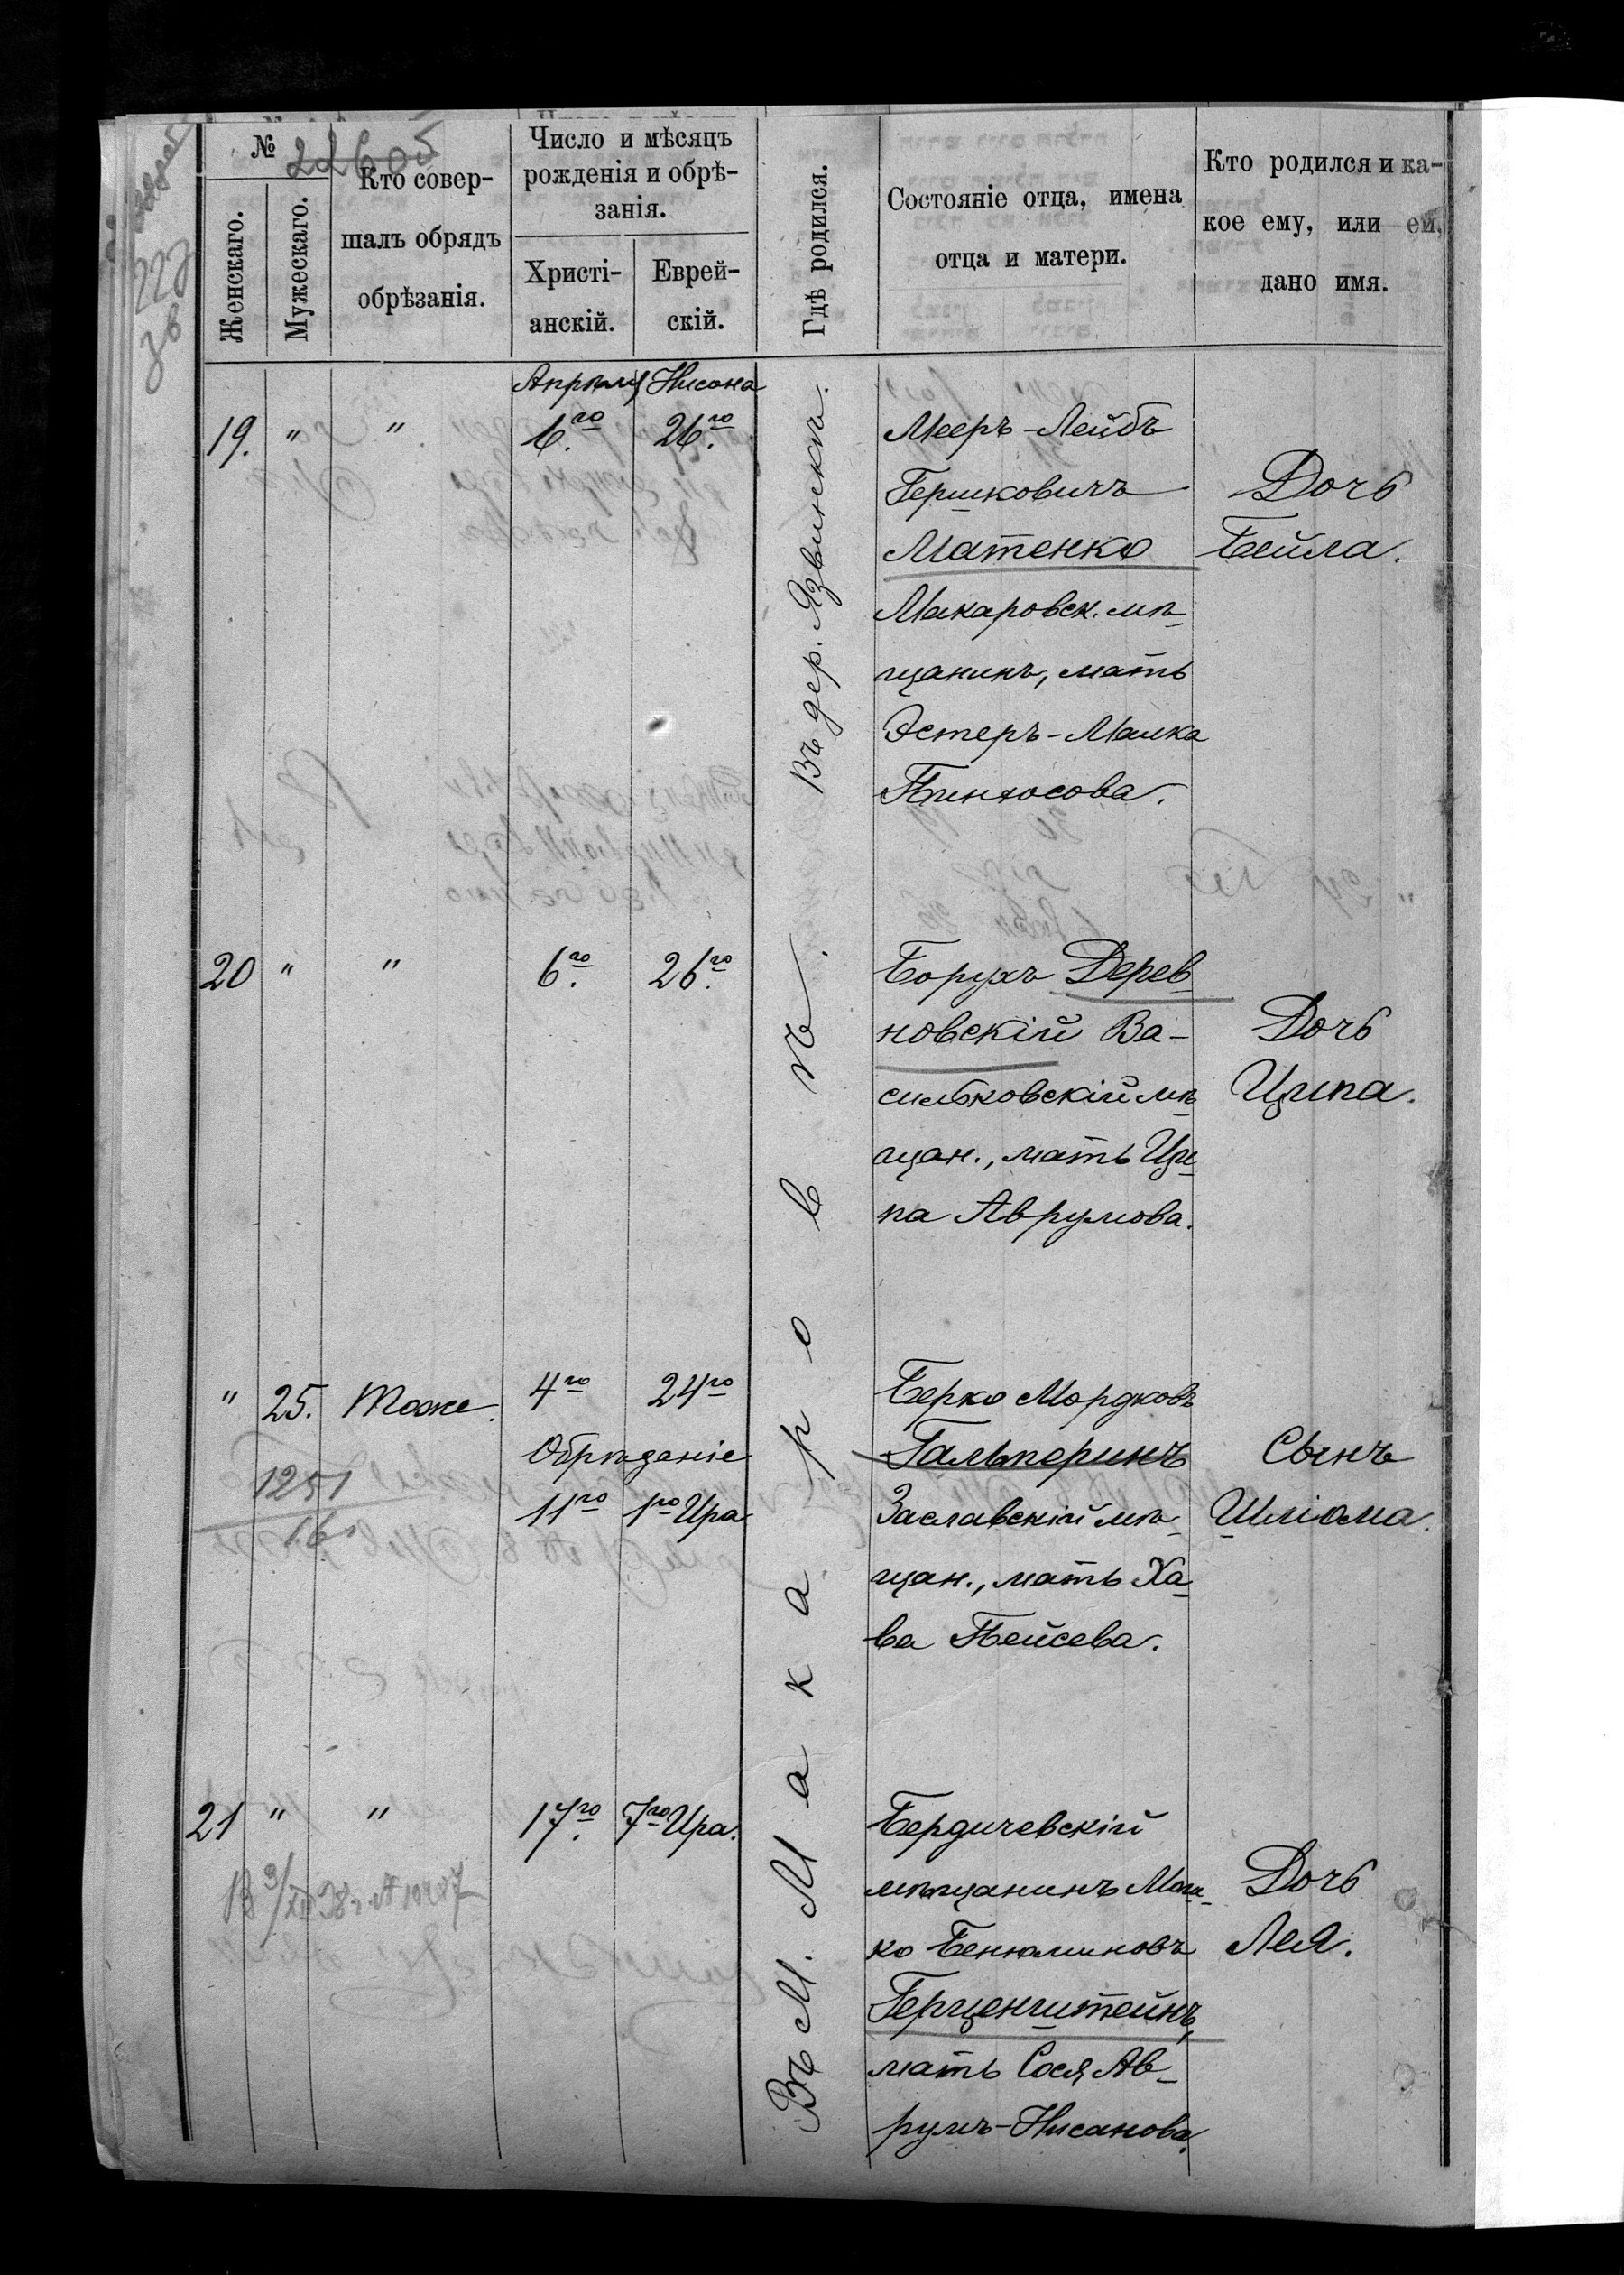 № 22605
Женскаго.
Мужескаго.
Кто совер-
шалъ обрядъ
обрѣзанія.
Число и мѣсяцъ
рожденія и обрѣ-
занія.
Христі-
анскій.
Еврей-
скій.
Гдѣ родился.
Состояніе отца, имена
отца и матери.
Кто родился и ка-
кое ему, или ей,
дано имя.
Апрѣля Нисона
19. " " 6.го 26.го
Въ дер. Язвинкѣ.
Мееръ-Лейбъ
Гершковичъ
Матенко
Макаровск. мѣ-
щанинъ, мать
Эстеръ-Малка
Пинхосова.
Дочь
Бейла.
20 " " 6.го 26.го
Въ М. Макаровѣ.
Борухъ Дерев
новскій Ва-
сильковскій мѣ
щан., мать Ци
па Аврумова.
Дочь
Ципа.
" 25. Тоже. 4го 24го
Обрѣзаніе
11го 1го Ира
1251
16
Берко Мордковъ
Гальперинъ
Заславскій мѣ-
щан., мать Ха
ва Пейсева.
Сынъ
Шліома.
21 " " 17.го 7го Ира.
Бердичевскій
мѣщанинъ Мош-
ко Бенюминовъ
Герценштейнъ,
мать Сося Ав-
румъ-Нисанова.
Дочь
Лея.